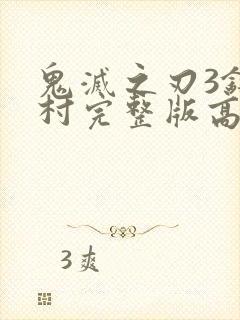 鬼滅之刃3
村完整版高
3爽